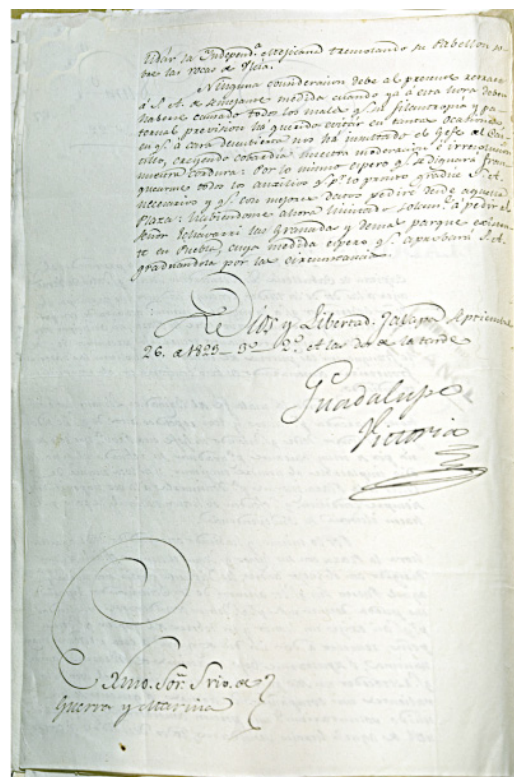 lidár la Independ.ª Mejicana tremolando su Pabellon so-
bre las rocas de Ulúa.
Ninguna consideracion debe al presente retraer
á S. A. de semejante medida cuando ya á esta hora deben
haberse causado todos los males q.e su filantropía y pa-
ternal prevision há querido evitár en tantas ocasiones
en q.e á cara descubierta nos há insultado el Gefe del Cas-
tillo, creyendo cobardía nuestra moderacion é irresolucion
nuestra cordura: Por lo mismo espero q.e se dignará fran-
quearme todos los auxilios q.e p.r lo pronto gradúe S. A.
necesarios y q.e con mejores datos pediré desde aquella
Plaza: habiendome ahora limitado solam.te á pedir al
Señor Echávarri las Granadas y demas parque existen-
te en Puebla, cuya medida espero q.e aprobará S. A.
graduandola por las circunstancias.
Dios y Libertad. Jalapa Septiembre
26. de 1823 3º 2º A las dos de la tarde
Guadalupe
Victoria
Exmo. Sor. Srio. de
Guerra y Marina